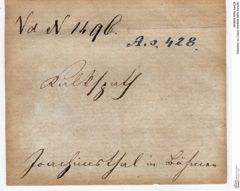 Vd N 1496.
A.s. 428.
Kalkspath
Joachimsthal in Böhmen